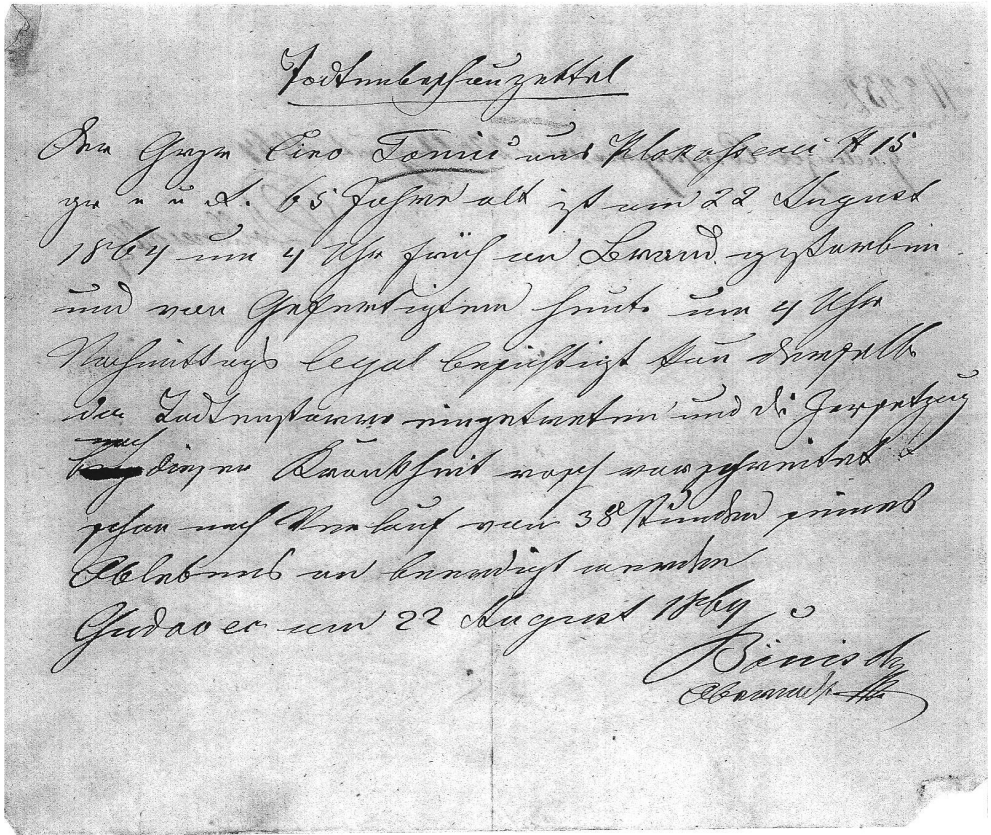 Todtenbeschauzettel
Der Grzr Ciro Tomić aus № 15
gr. n. u. R. 65 Jahre alt ist am 22 August
1864 um 4 Uhr früh an Brand gestorben
und von Gefertigtem heute um 4 Uhr
Nachmittags legal besichtigt kan derselbe
da Todtenstarre eingetreten und die Zersetzug
nach dieser Krankheit rasch vorschreitet
schon nach Verlauf von 38 Stunden seines
Ablebens an beerdigt werden
am 22 August 1864
Bönisch